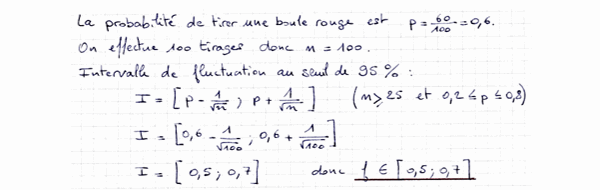 La probabilité de tirer une boule rouge est p = 60/100 = 0,6.
On effectue 100 tirages donc n = 100.
Intervalle de fluctuation au seuil de 95 % :
I = [p - 1/√n ; p + 1/√n] (n ≥ 25 et 0,2 ≤ p ≤ 0,8)
I = [0,6 - 1/√100 ; 0,6 + 1/√100]
I = [0,5 ; 0,7] donc f ∈ [0,5 ; 0,7]